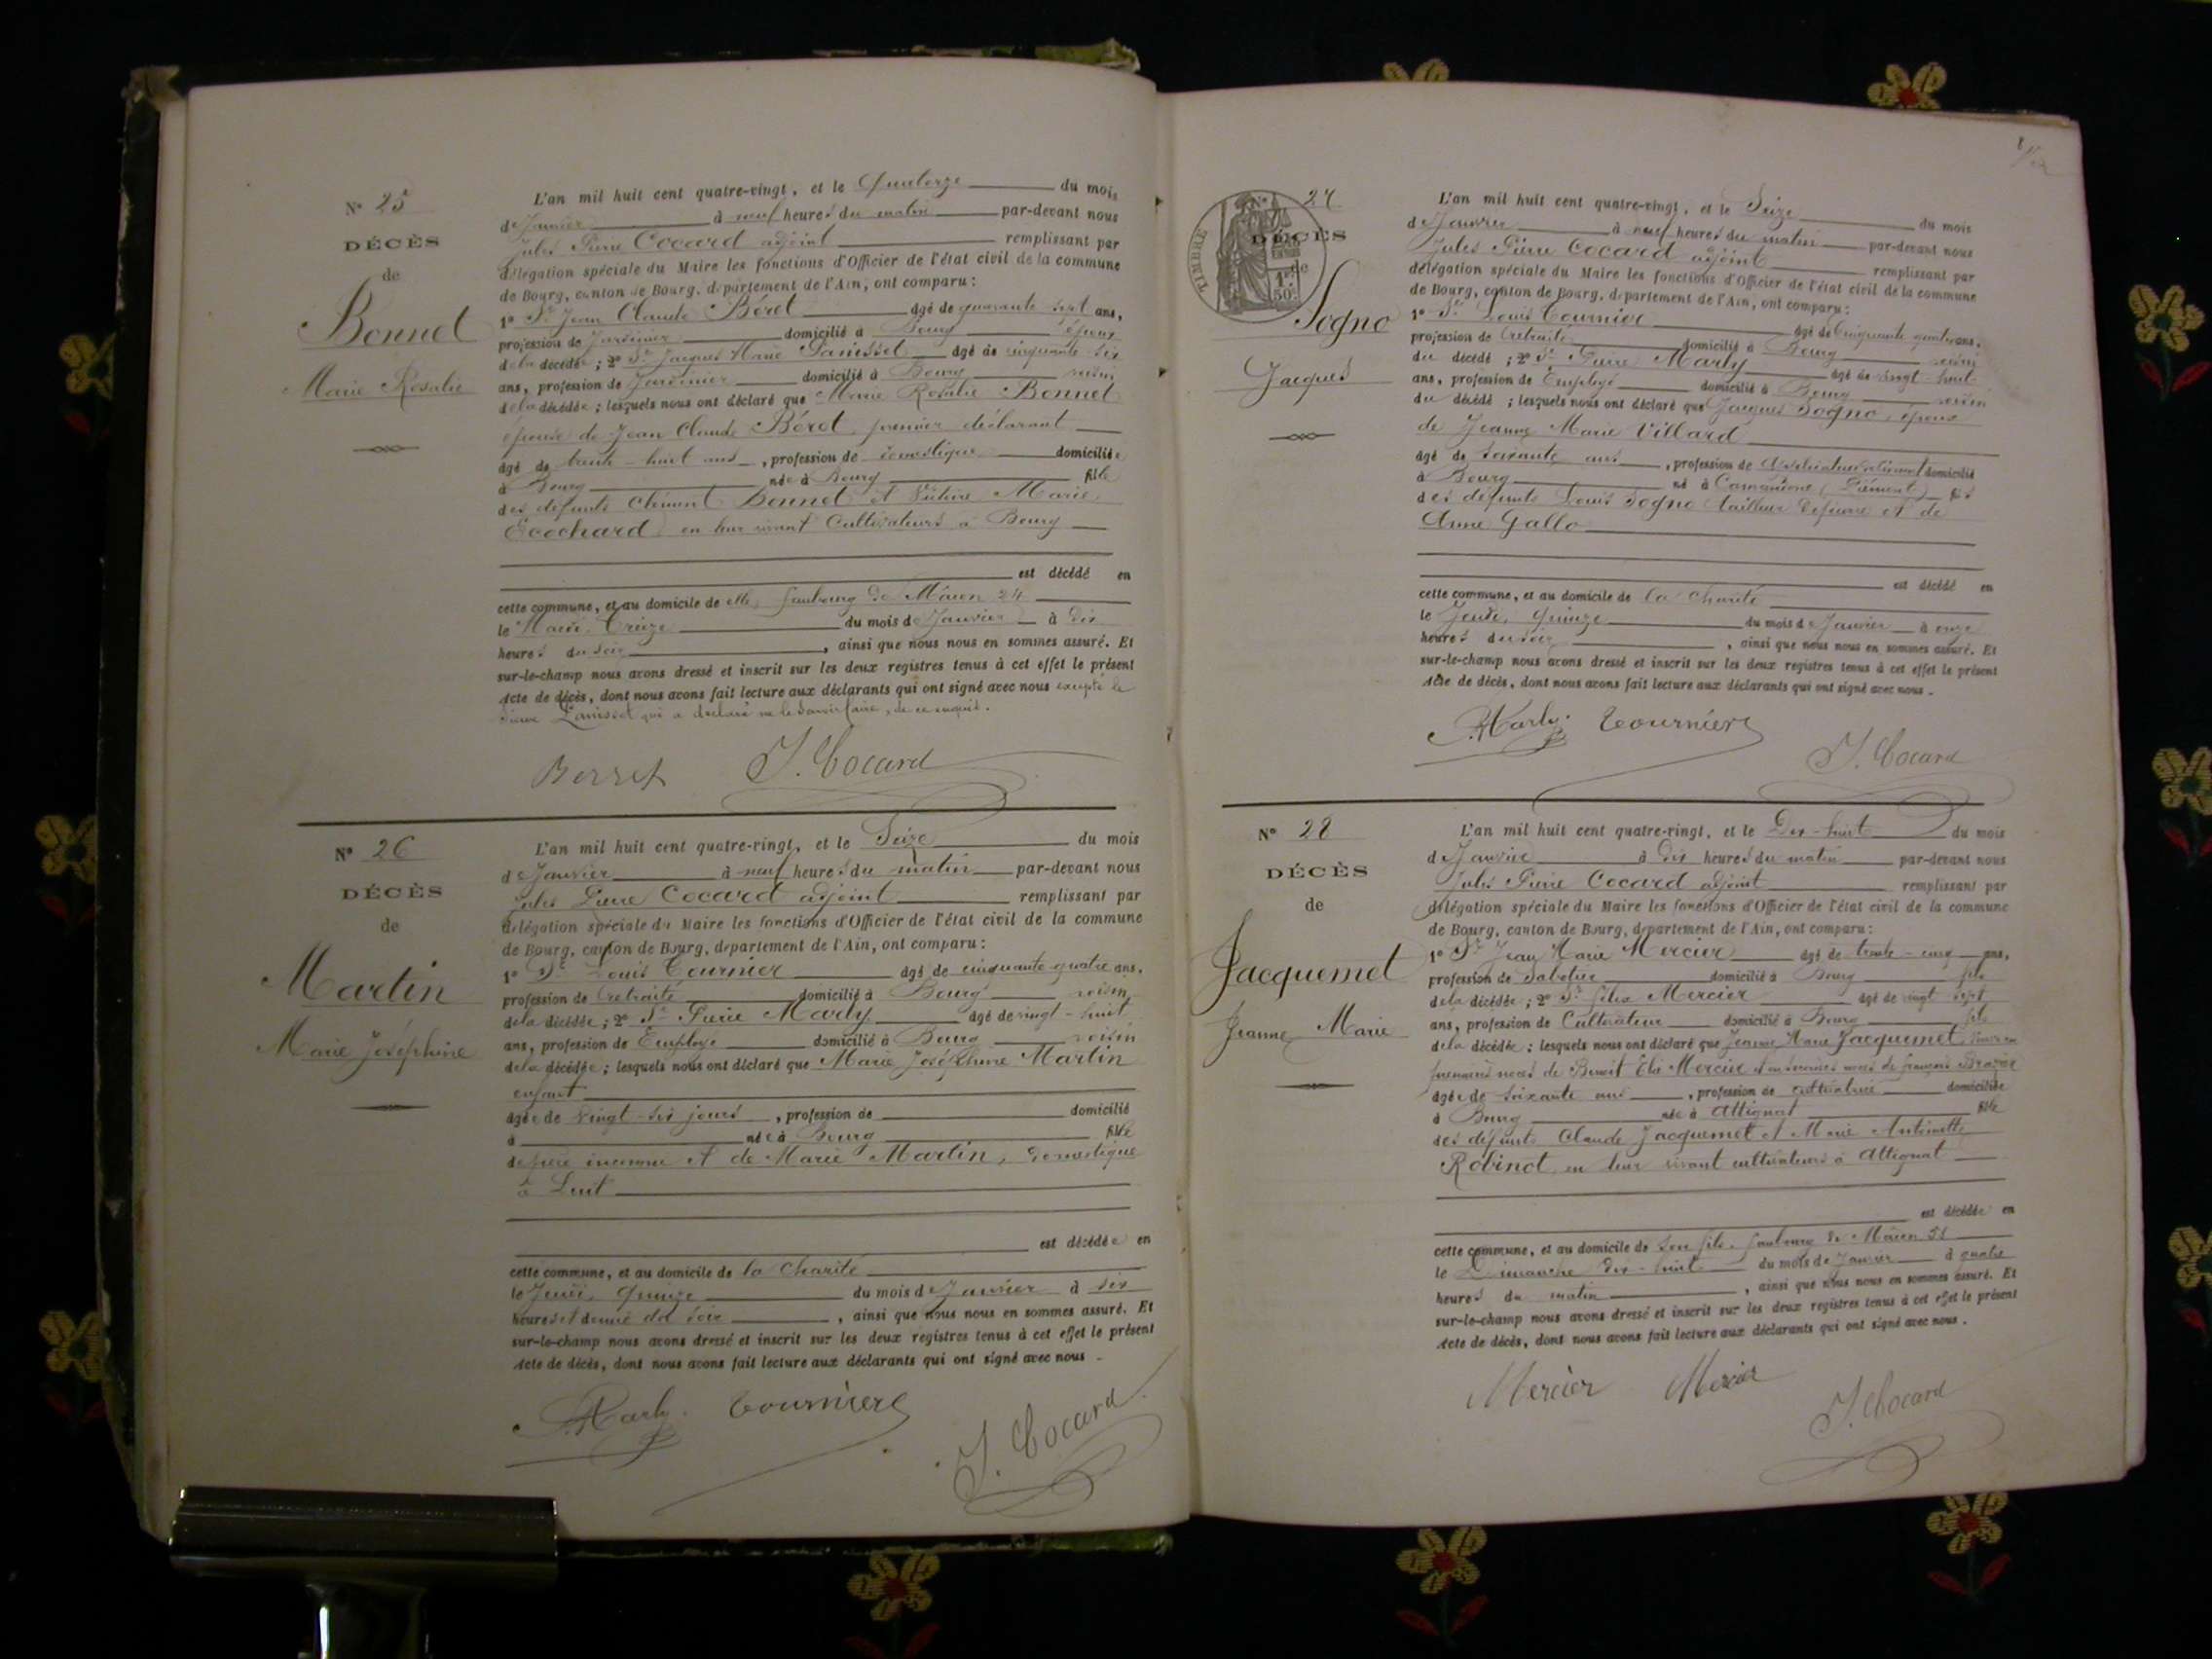 N° 25
DÉCÈS
de
Bonnet
Marie Rosalie
L'an mil huit cent quatre-vingt, et le Quatorze du mois
de Janvier à neuf heures du matin par-devant nous
Jules Pierre Cocard adjoint remplissant par
délégation spéciale du Maire les fonctions d'Officier de l'état civil de la commune
de Bourg, canton de Bourg, département de l'Ain, ont comparu :
1° Sr Jean Claude Béret âgé de quarante sept ans,
profession de Jardinier domicilié à Bourg époux
de la décédée ; 2° Sr Jacques Marie Panisset âgé de cinquante six
ans, profession de Jardinier domicilié à Bourg voisin
de la décédée ; lesquels nous ont déclaré que Marie Rosalie Bonnet
épouse de Jean Claude Béret premier déclarant
âgé de trente-huit ans, profession de domestique domiciliée
à Bourg née à Bourg fille
des défunts Clément Bonnet et Marie
Ecochard en leur vivant Cultivateurs à Bourg
est décédé en
cette commune, et au domicile de elle, faubourg de Mâcon 24
le Mardi Treize du mois de Janvier à dix
heures du soir, ainsi que nous nous en sommes assuré. Et
sur-le-champ nous avons dressé et inscrit sur les deux registres tenus à cet effet le présent
Acte de décès, dont nous avons fait lecture aux déclarants qui ont signé avec nous excepté le
sieur Panisset qui a déclaré ne le savoir faire, de ce enquis.
Berret J. Cocard
N° 26
DÉCÈS
de
Martin
Marie Joséphine
L'an mil huit cent quatre-vingt, et le Seize du mois
de Janvier à neuf heures du matin par-devant nous
Jules Pierre Cocard adjoint remplissant par
délégation spéciale du Maire les fonctions d'Officier de l'état civil de la commune
de Bourg, canton de Bourg, département de l'Ain, ont comparu :
1° Sr Louis Tournier âgé de cinquante quatre ans,
profession de retraité domicilié à Bourg voisin
de la décédée ; 2° Sr Pierre Marly âgé de vingt-huit
ans, profession de Employé domicilié à Bourg voisin
de la décédée ; lesquels nous ont déclaré que Marie Joséphine Martin
enfant
âgée de vingt-six jours, profession de domicilié
à née à Bourg fille
de père inconnu et de Marie Martin, domestique
à
est décédée en
cette commune, et au domicile de la Charité
le Jeudi, quinze du mois de Janvier à six
heures et demie du soir, ainsi que nous nous en sommes assuré. Et
sur-le-champ nous avons dressé et inscrit sur les deux registres tenus à cet effet le présent
Acte de décès, dont nous avons fait lecture aux déclarants qui ont signé avec nous.
Marly. Tournier J. Cocard
N° 27
DÉCÈS
de
TIMBRE
1fr 50c
Sogno
Jacques
L'an mil huit cent quatre-vingt, et le Seize du mois
de Janvier à neuf heures du matin par-devant nous
Jules Pierre Cocard adjoint remplissant par
délégation spéciale du Maire les fonctions d'Officier de l'état civil de la commune
de Bourg, canton de Bourg, département de l'Ain, ont comparu :
1° Sr Louis Tournier âgé de Cinquante quatre ans,
profession de retraité domicilié à Bourg voisin
du décédé ; 2° Sr Pierre Marly âgé de vingt-huit
ans, profession de Employé domicilié à Bourg voisin
du décédé ; lesquels nous ont déclaré que Jacques Sogno, époux
de Jeanne Marie Villard
âgé de soixante ans, profession de domicilié
à Bourg né à (Piémont) fils
des défunts Louis Sogno tailleur de pierre et de
Anne Gallo
est décédé en
cette commune, et au domicile de la Charité
le Jeudi, quinze du mois de Janvier à onze
heures du soir, ainsi que nous nous en sommes assuré. Et
sur-le-champ nous avons dressé et inscrit sur les deux registres tenus à cet effet le présent
Acte de décès, dont nous avons fait lecture aux déclarants qui ont signé avec nous.
Marly. Tournier J. Cocard
N° 28
DÉCÈS
de
Jacquemet
Jeanne Marie
L'an mil huit cent quatre-vingt, et le Dix-huit du mois
de Janvier à dix heures du matin par-devant nous
Jules Pierre Cocard adjoint remplissant par
délégation spéciale du Maire les fonctions d'Officier de l'état civil de la commune
de Bourg, canton de Bourg, département de l'Ain, ont comparu :
1° Sr Jean Marie Mercier âgé de trente-cinq ans,
profession de Sabotier domicilié à Bourg fils
de la décédée ; 2° Sr Félix Mercier âgé de vingt sept
ans, profession de Cultivateur domicilié à Bourg fils
de la décédée ; lesquels nous ont déclaré que Jeanne Marie Jacquemet, veuve en
premières noces de Benoit Mercier et en secondes noces de François Brazier
âgée de soixante ans, profession de cultivatrice domiciliée
à Bourg née à Attignat fille
des défunts Claude Jacquemet et Marie Antoinette
Robinot en leur vivant cultivateurs à Attignat
est décédée en
cette commune, et au domicile de son fils, faubourg de Mâcon 51
le Dimanche dix-huit du mois de Janvier à quatre
heures du matin, ainsi que nous nous en sommes assuré. Et
sur-le-champ nous avons dressé et inscrit sur les deux registres tenus à cet effet le présent
Acte de décès, dont nous avons fait lecture aux déclarants qui ont signé avec nous.
Mercier Mercier J. Cocard